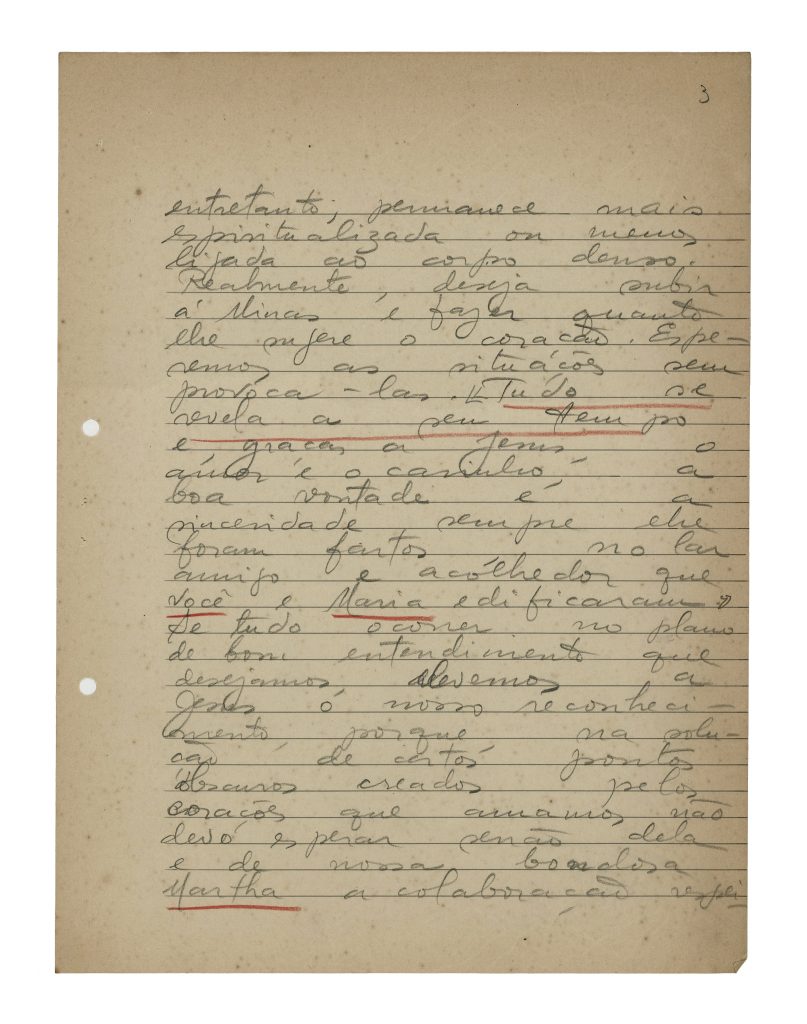 3
entretanto, permanece mais
espiritualizada ou menos
ligada ao corpo denso.
Realmente, deseja subir
á Minas e fazer quanto
lhe sugere o coração. Espe-
remos as situações sem
provóca-las. Tudo se
revela a seu tempo
e graças a Jesus, o
amor e o carinho, a
boa vontade e a
sinceridade sempre lhe
foram fartos no lar
amigo e acolhedor que
você e Maria edificaram.
Se tudo ocorrer no plano
de bom entendimento que
desejamos devemos a
Jesus o nosso reconheci-
mento, porque na solu-
ção de certos pontos
obscuros creados pelos
corações que amamos não
devo esperar senão dela
e de nossa bondosa
Martha a colaboração